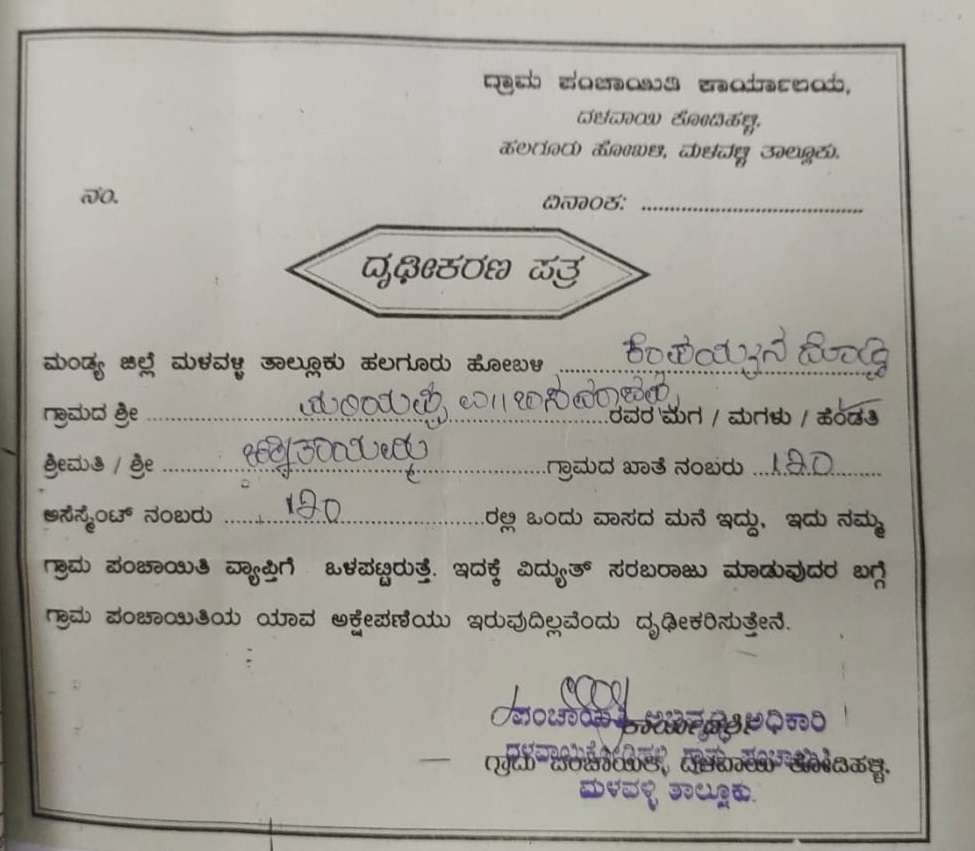 ಗ್ರಾಮ ಪಂಚಾಯಿತಿ ಕಾರ್ಯಾಲಯ,
ದಳವಾಯಿ ಕೋಡಿಹಳ್ಳಿ.
ಹಲಗೂರು ಹೋಬಳಿ, ಮಳವಳ್ಳಿ ತಾಲ್ಲೂಕು.
ನಂ. ದಿನಾಂಕ: ........................................
ದೃಢೀಕರಣ ಪತ್ರ
ಮಂಡ್ಯ ಜಿಲ್ಲೆ ಮಳವಳ್ಳಿ ತಾಲ್ಲೂಕು ಹಲಗೂರು ಹೋಬಳಿ ಕೆಂಪಯ್ಯನ ದೊಡ್ಡಿ
ಗ್ರಾಮದ ಶ್ರೀ ರವರ ಮಗ / ಮಗಳು / ಹೆಂಡತಿ
ಶ್ರೀಮತಿ / ಶ್ರೀ ಗ್ರಾಮದ ಖಾತೆ ನಂಬರು
ಅಸೆಸ್ಮೆಂಟ್ ನಂಬರು ರಲ್ಲಿ ಒಂದು ವಾಸದ ಮನೆ ಇದ್ದು, ಇದು ನಮ್ಮ
ಗ್ರಾಮ ಪಂಚಾಯಿತಿ ವ್ಯಾಪ್ತಿಗೆ ಒಳಪಟ್ಟಿರುತ್ತೆ. ಇದಕ್ಕೆ ವಿದ್ಯುತ್ ಸರಬರಾಜು ಮಾಡುವುದರ ಬಗ್ಗೆ
ಗ್ರಾಮ ಪಂಚಾಯಿತಿಯ ಯಾವ ಅಕ್ಷೇಪಣೆಯು ಇರುವುದಿಲ್ಲವೆಂದು ದೃಢೀಕರಿಸುತ್ತೇನೆ.
ಪಂಚಾಯತಿ ಅಭಿವೃದ್ಧಿ ಅಧಿಕಾರಿ
ಗ್ರಾಮ ಪಂಚಾಯಿತಿ, ದಳವಾಯಿ ಕೋಡಿಹಳ್ಳಿ.
ಮಳವಳ್ಳಿ ತಾಲ್ಲೂಕು.